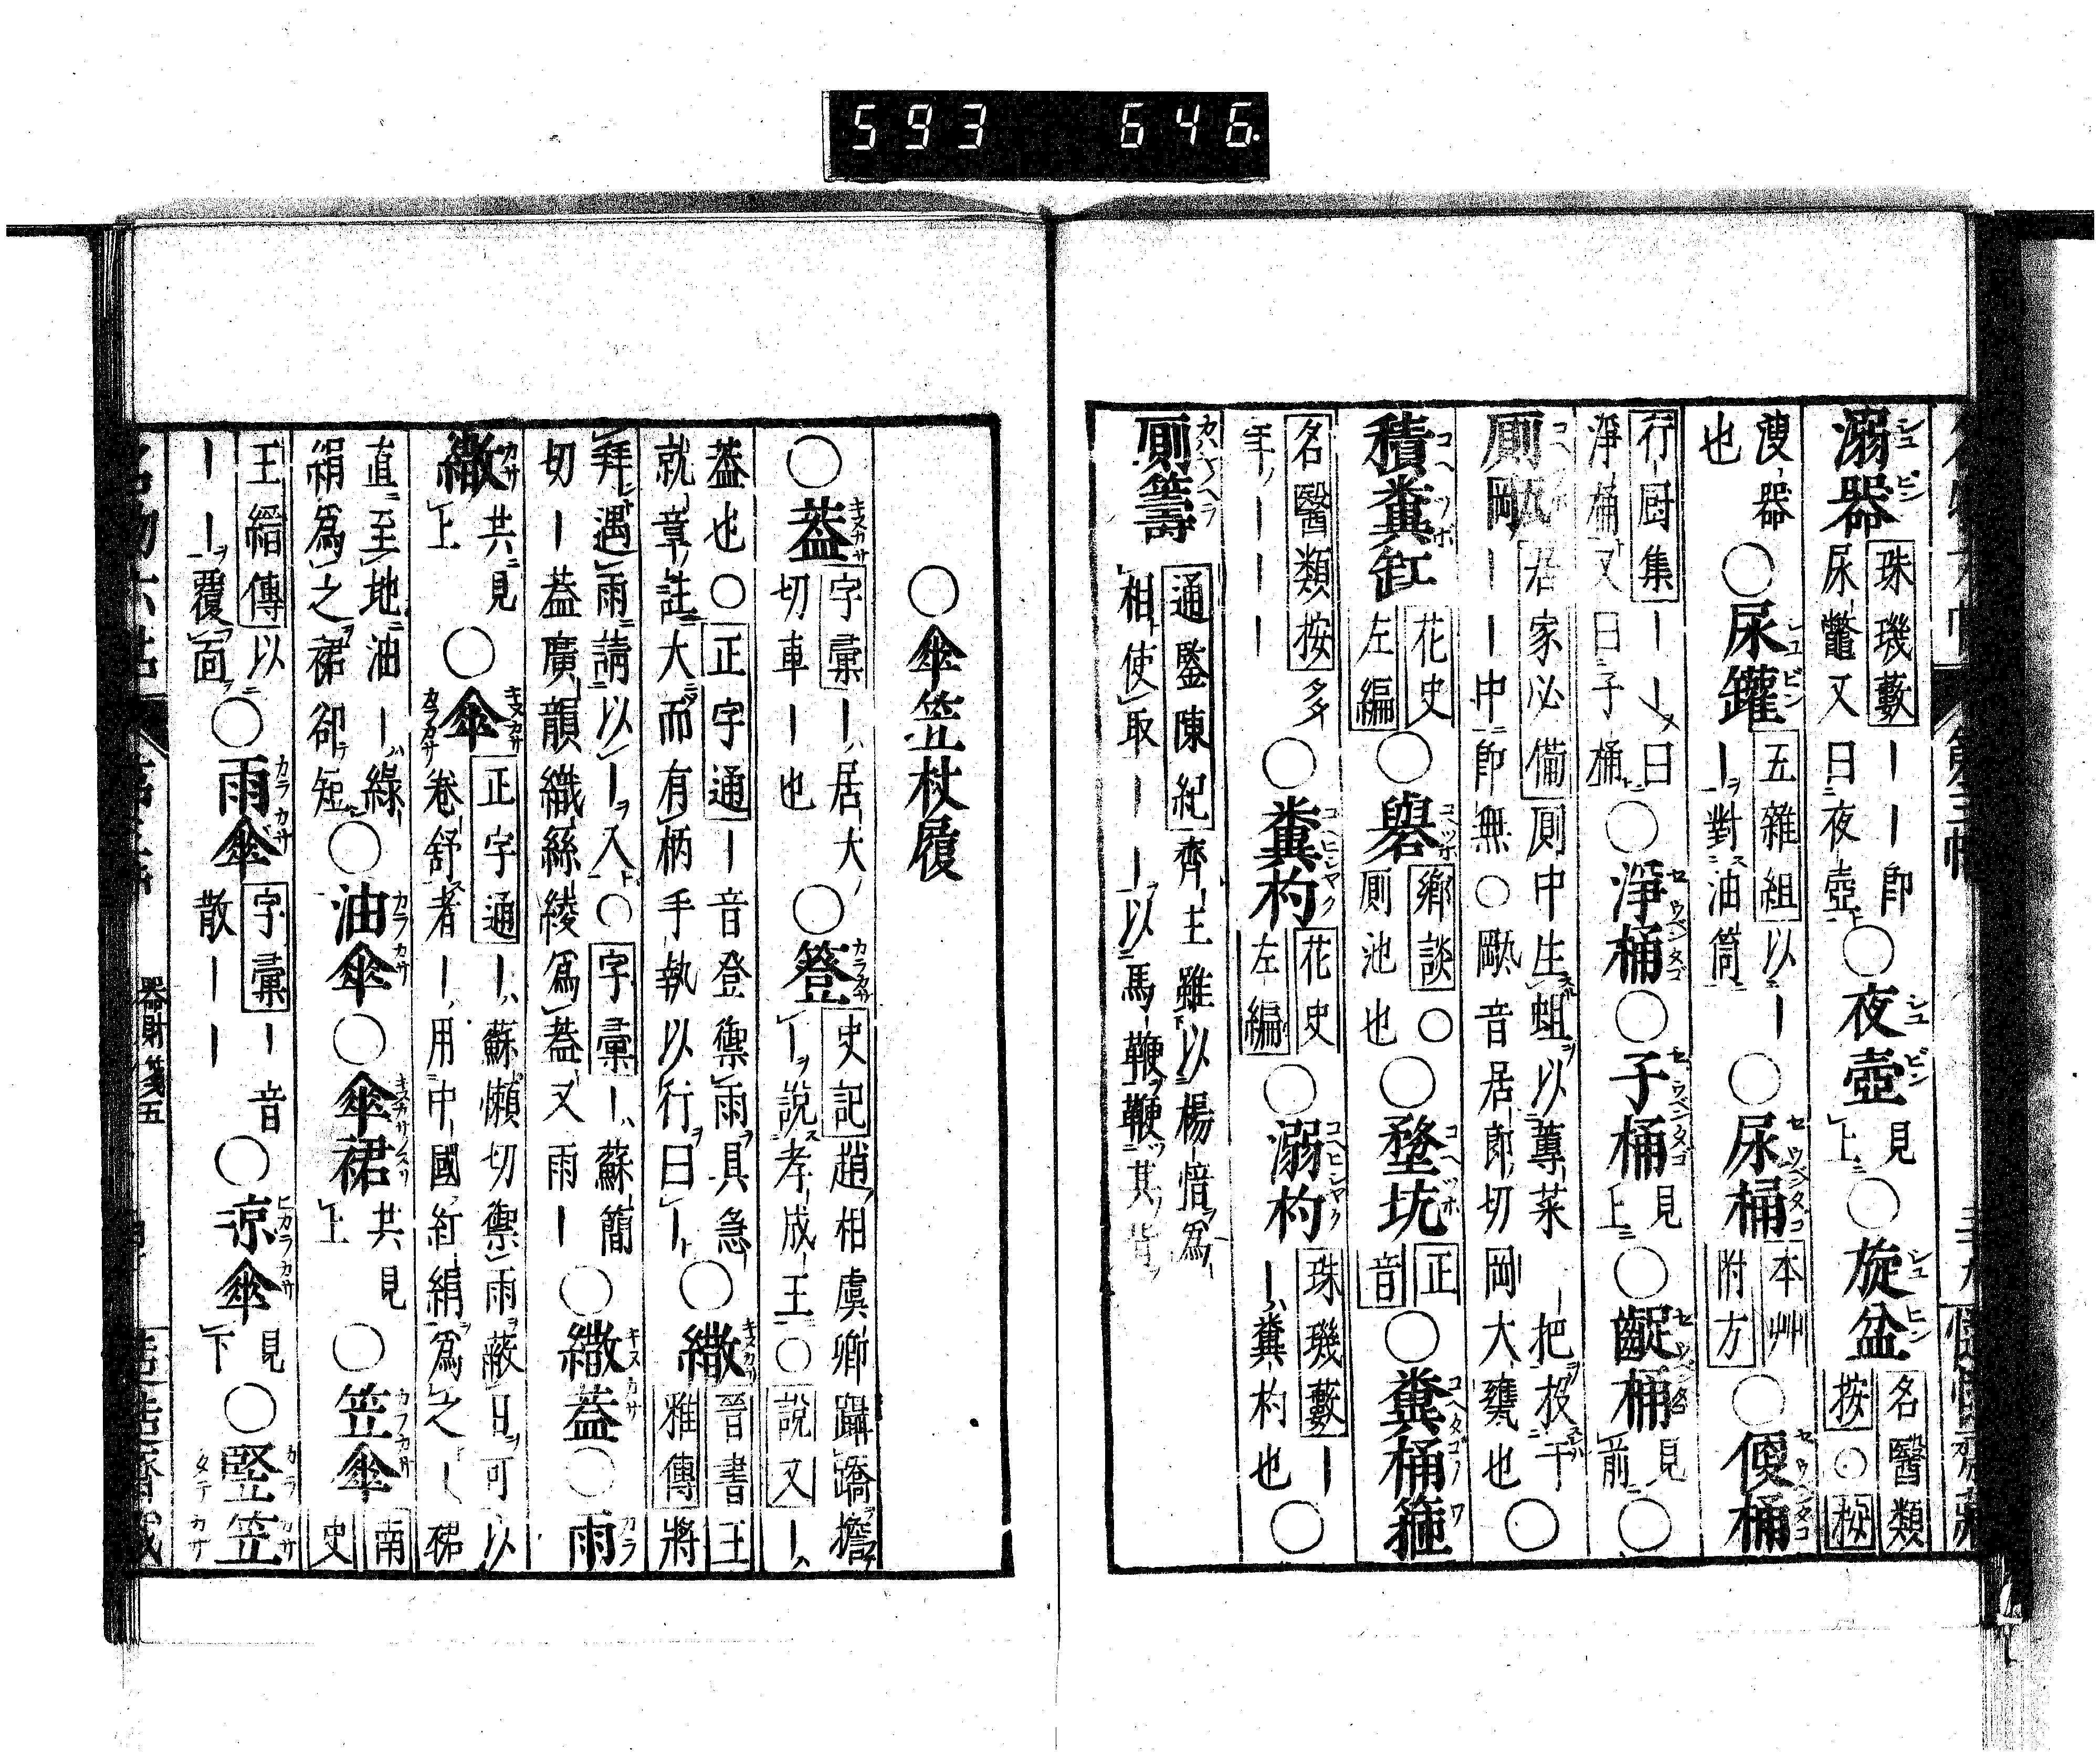 593 646
溺器 珠璣藪 ーー即尿鼈又曰夜壺 ○夜壺 見上 ○旋盆 名醫類按○秘
溲器也 ○尿罐 五雜組 以ー對油筒 ○尿桶 本艸附方 ○便桶
行厨集 ーー曰淨桶又曰子桶 ○淨桶 ○子桶 見上 ○齪桶 見前 ○
厠 居家必備 厠中生蛆以蓴菜一把投于厠ーー中即無○ 音居郎切岡大甕也 ○
積糞缸 花史左編 ○礐 鄉談○厠池也 ○堥坑 正音 ○糞桶箍
名醫類按 多年ーーー ○糞杓 花史左編 ○溺杓 珠璣藪 ーー糞杓也 ○
厠籌 通鑒陳紀 齊主雖以楊愔爲相使取ーー以馬鞭鞭其背
○傘笠杖履
○蓋 字彙 ー居大切車ー也 ○簦 史記 趙相虞卿躡蹻擔ー說孝成王○說文 ー
蓋也○正字通 ー音登禦雨具急就章註大而有柄手執以行曰ー ○繖 晉書王雅傳 將
拜遇雨請以ー入○字彙 ー蘇簡切ー蓋廣韻織絲綾爲蓋又雨ー ○繖蓋 ○雨
繖 共見上 ○傘 正字通 ー蘇懶切禦雨蔽日可以卷舒者ー用中國紅絹爲之ー裙
直至地油ー綠絹爲之裙卻短 ○油傘 ○傘裙 共見上 ○笠傘 南史
王縉傳 以ーー覆面 ○雨傘 字彙 ー音散ーー ○涼傘 見下 ○竪笠
器財箋五